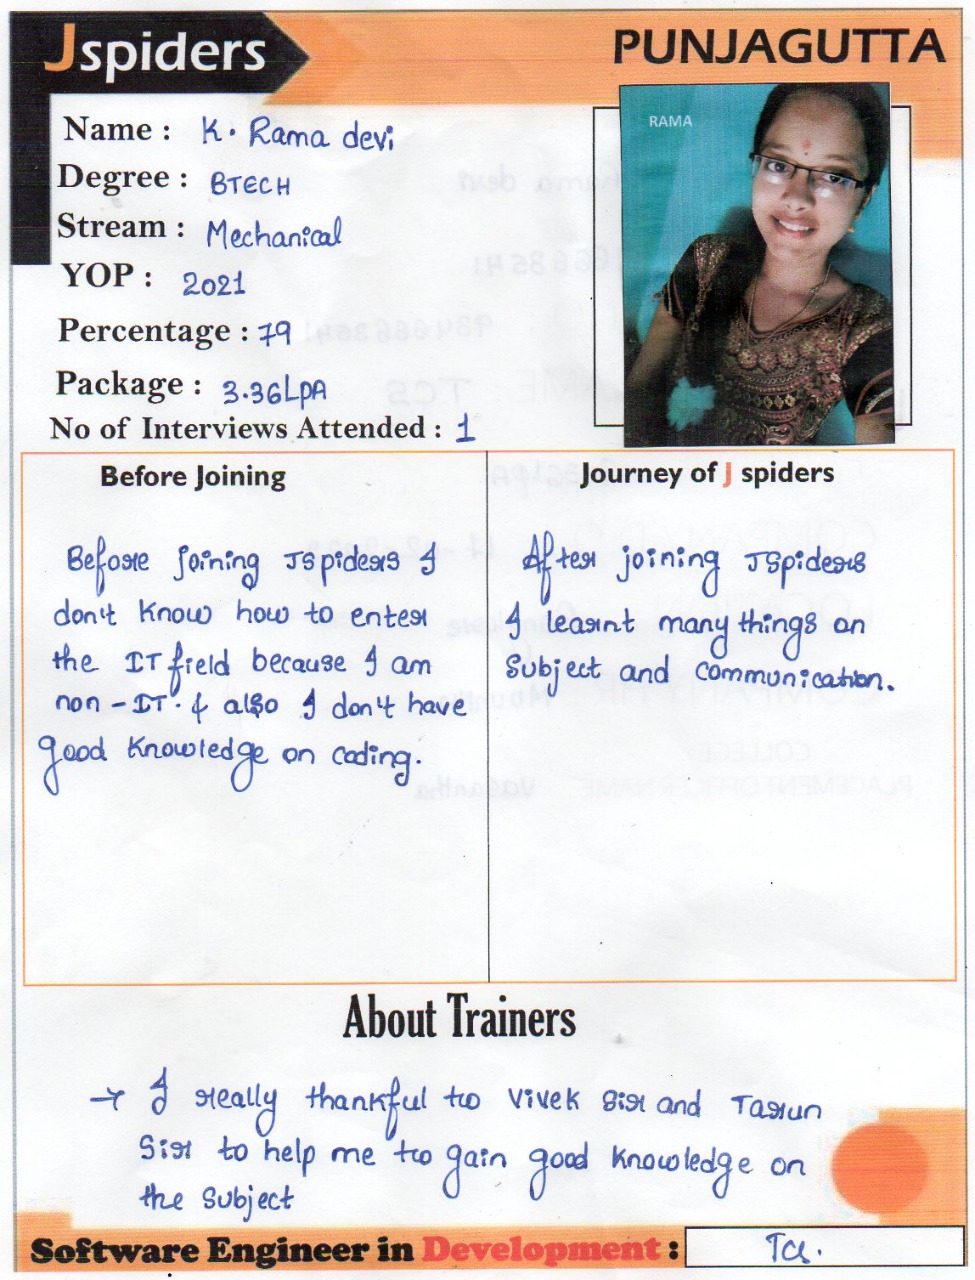 Jspiders
PUNJAGUTTA
Name : K. Rama devi
RAMA
Degree : BTECH
Stream : Mechanical
YOP : 2021
Percentage : 79
Package : 3.36LPA
No of Interviews Attended : 1
Before Joining
Before joining Jspiders I
don't know how to enter
the IT field because I am
non-IT. & also I don't have
good knowledge on coding.
Journey of J spiders
After joining Jspiders
I learnt many things on
subject and communication.
About Trainers
→ I really thankful to Vivek sir and Tarun
Sir to help me to gain good knowledge on
the subject
Software Engineer in Development :